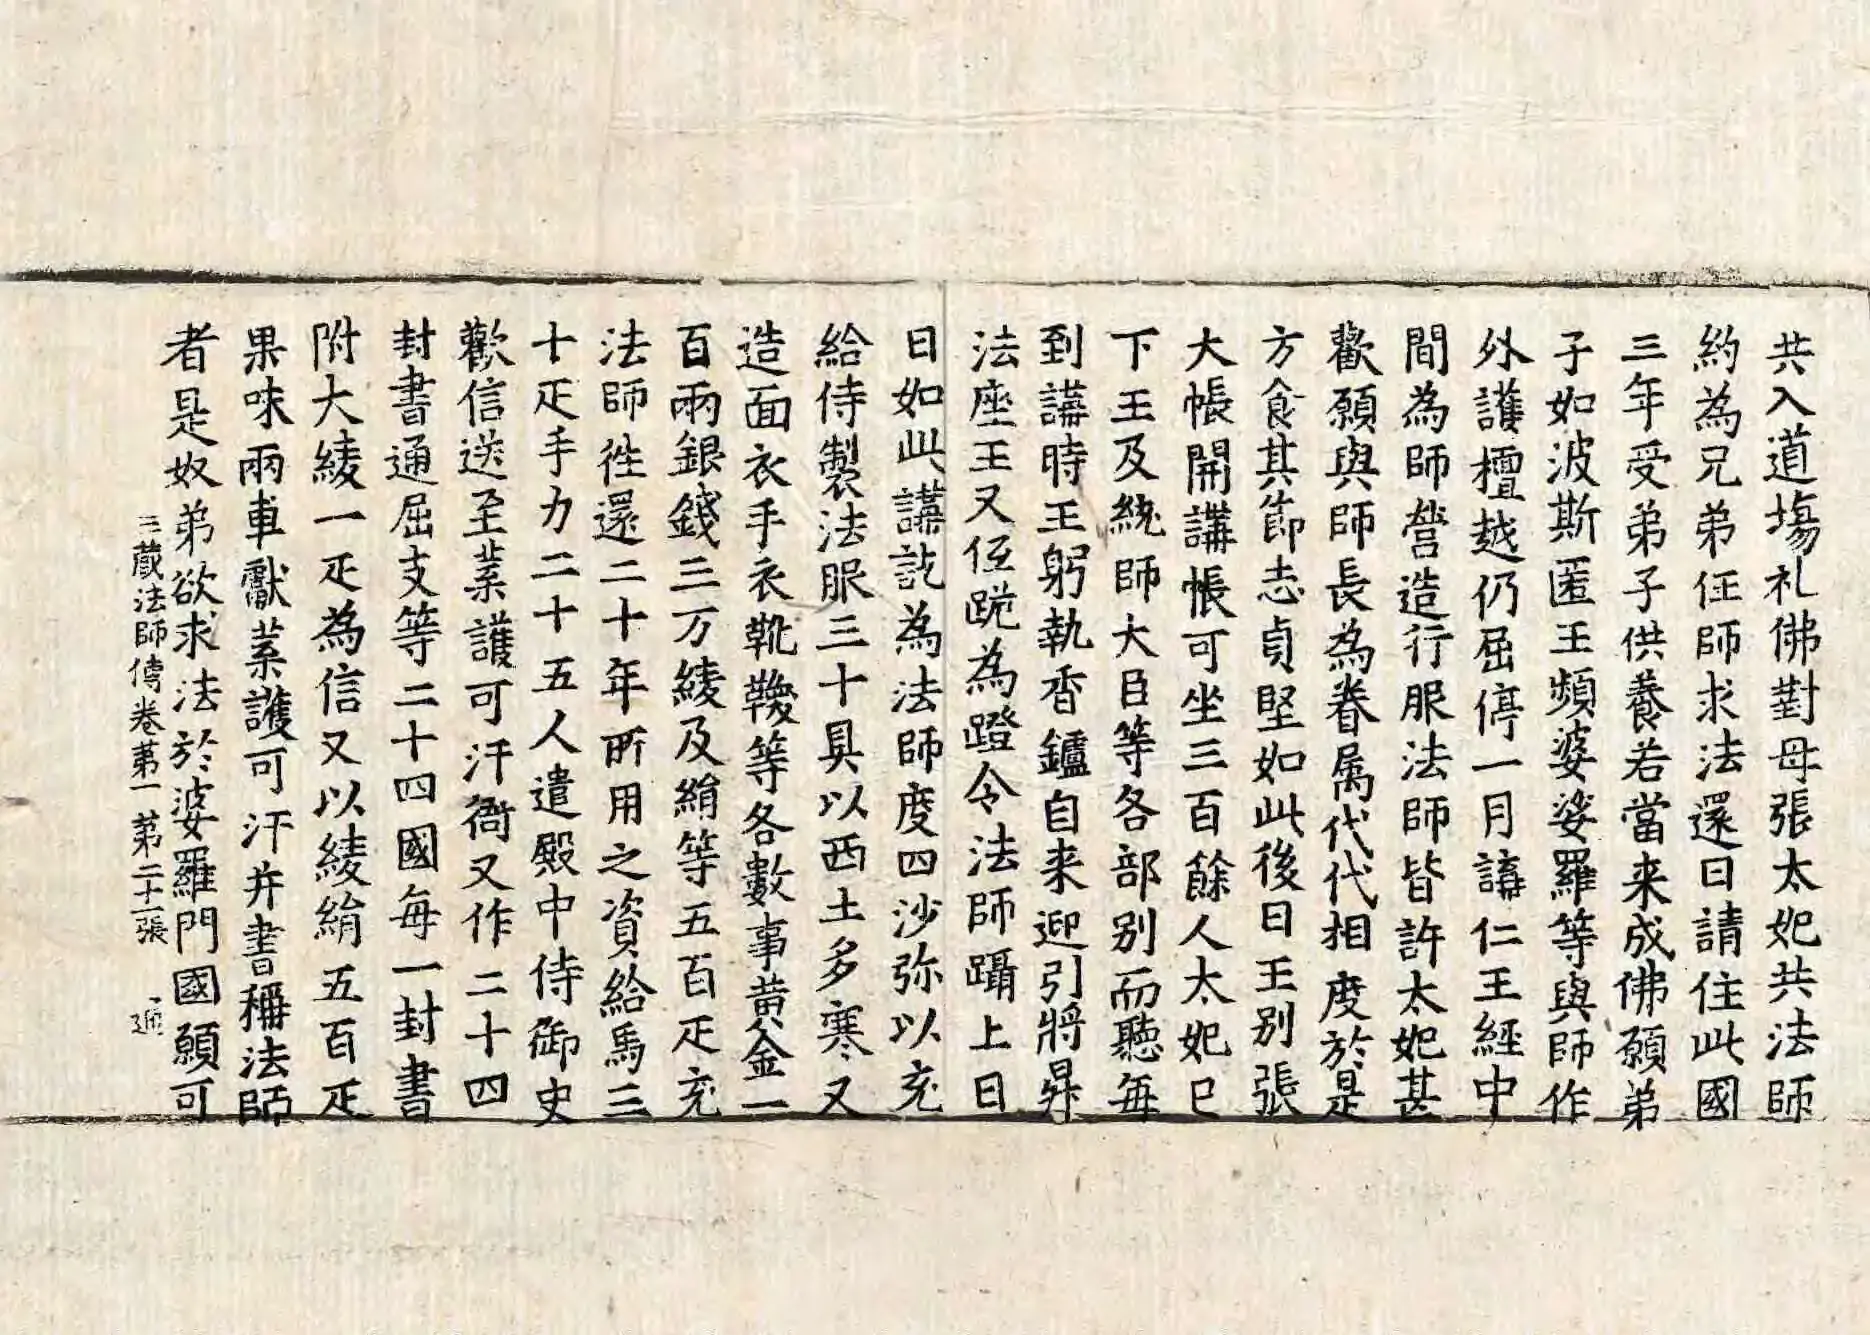 共入道塲礼佛對母張太妃共法師
約為兄弟任師求法還日請住此國
三年受弟子供養若當来成佛願弟
子如波斯匿王頻婆娑羅等與師作
外護檀越仍屈停一月講仁王經中
間為師營造行服法師皆許太妃甚
歡願與師長為眷属代代相度於是
方食其節志貞堅如此後日王別張
大帳開講帳可坐三百餘人太妃已
下王及統師大臣等各部别而聽每
到講時王躬執香鑪自来迎引將昇
法座王又伍跪為蹬令法師躡上日
日如此講訖為法師度四沙弥以充
給侍製法服三十具以西土多寒又
造面衣手衣靴韈等各數事黄金一
百兩銀錢三万綾及絹等五百疋充
法師徃還二十年所用之資給馬三
十疋手力二十五人遣殿中侍御史
歡信送至葉護可汗衙又作二十四
封書通屈支等二十四國每一封書
附大綾一疋為信又以綾絹五百疋
果味兩車獻葉護可汗并書稱法師
者是奴弟欲求法於婆羅門國願可
三藏法師傳卷第一 第二十一張 通